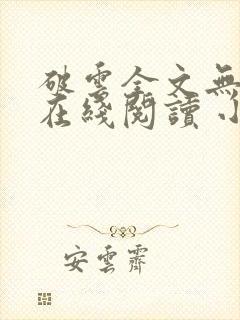 破雲全文無
在綫閱讀小
安雲齊